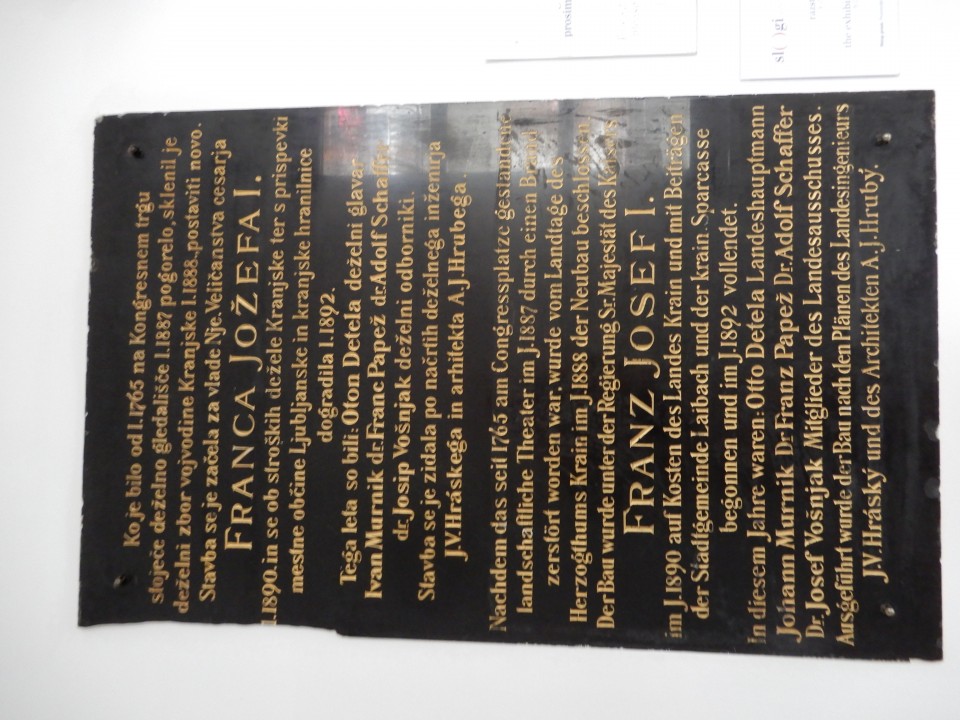 Ko je bilo od l.1765 na Kongresnem trgu
stoječe deželno gledališče l.1887 pogorelo, sklenil je
deželni zbor vojvodine Kranjske l.1888. postaviti novo.
Stavba se je začela za vlade Nje. Veličanstva cesarja
FRANCA JOŽEFA I.
l.1890. in se ob stroških dežele Kranjske ter s prispevki
mestne občine Ljubljanske in kranjske hranilnice
dogradila l.1892.
Tega leta so bili: Oton Detela deželni glavar
Ivan Murnik dr. Franc Papež dr. Adolf Schaffer
dr. Josip Vošnjak deželni odborniki.
Stavba se je zidala po načrtih deželnega inženirja
J.V. Hráskega in arhitekta A.J. Hrubega.
Nachdem das seit 1765 am Congressplatze gestandene
landschaftliche Theater im J.1887 durch einen Brand
zerstört worden war, wurde vom Landtage des
Herzogthums Krain im J.1888 der Neubau beschlossen
Der Bau wurde unter der Regierung Sr. Majestät des Kaisers
FRANZ JOSEF I.
im J.1890 auf Kosten des Landes Krain und mit Beiträgen
der Stadtgemeinde Laibach und der krain. Sparcasse
begonnen und im J.1892 vollendet.
In diesem Jahre waren: Otto Detela Landeshauptmann
Johann Murnik Dr. Franz Papež Dr. Adolf Schaffer
Dr. Josef Vošnjak Mitglieder des Landesausschusses.
Ausgeführt wurde der Bau nach den Plänen des Landesingenieurs
J.V. Hráský und des Architekten A.J. Hrubý.
prosim
sl( )gi
the exhibi